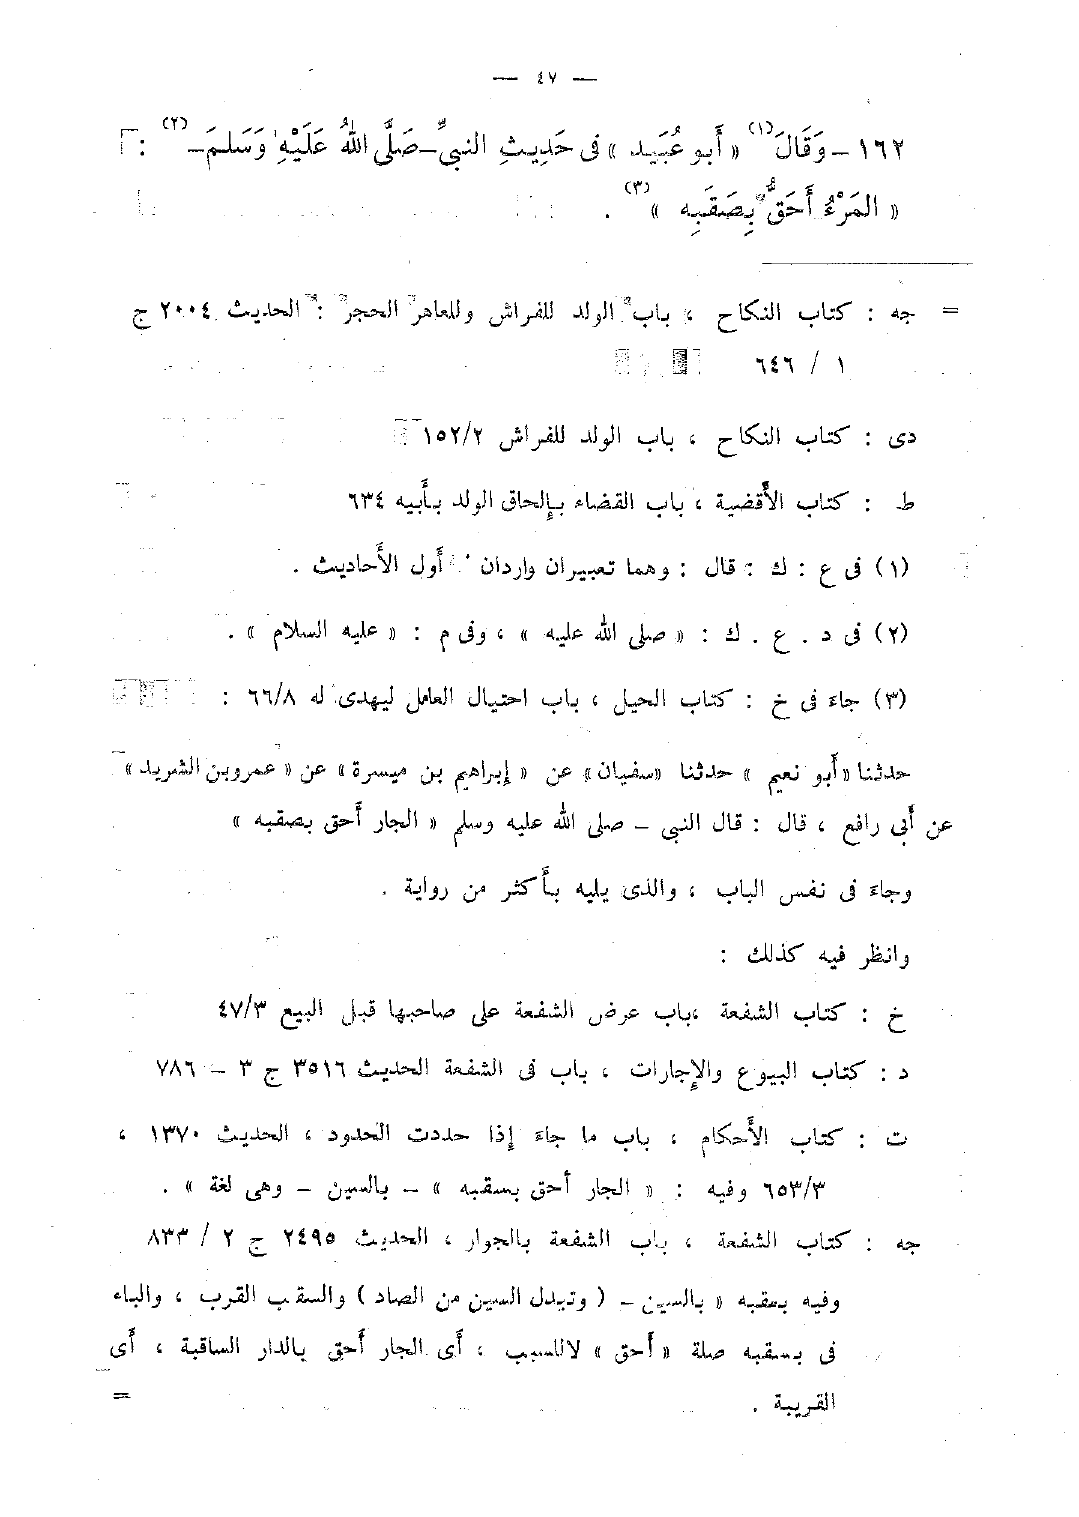 — ٤٧ —
١٦٢ – وَقَالَ(١) « أَبو عُبَيد » فى حَدِيثِ النبىِّ – صَلَّى اللهُ عَلَيْهِ وَسَلَمَ –(٢) :
« المَرْءُ أَحَقُّ بِصَقَبِه »(٣) .
= جه : كتاب النكاح ، باب الولد للفراش وللعاهر الحجر : الحديث ٢٠٠٤ ج
١ / ٦٤٦
دى : كتاب النكاح ، باب الولد للفراش ١٥٢/٢
ط : كتاب الأقضية ، باب القضاء بإلحاق الولد بأبيه ٦٣٤
(١) فى ع : ك : قال : وهما تعبيران واردان أول الأحاديث .
(٢) فى د . ع . ك : « صلى الله عليه » ، وفى م : « عليه السلام » .
(٣) جاء فى خ : كتاب الحيل ، باب احتيال العامل ليهدى له ٦٦/٨ :
حدثنا «أبو نعيم » حدثنا «سفيان» عن « إبراهيم بن ميسرة» عن « عمروبن الشريد »
عن أبى رافع ، قال : قال النبى – صلى الله عليه وسلم « الجار أحق بصقبه »
وجاء فى نفس الباب ، والذى يليه بأكثر من رواية .
وانظر فيه كذلك :
خ : كتاب الشفعة ،باب عرض الشفعة على صاحبها قبل البيع ٤٧/٣
د : كتاب البيوع والإجارات ، باب فى الشفعة الحديث ٣٥١٦ ج ٣ – ٧٨٦
ت : كتاب الأحكام ، باب ما جاء إذا حددت الحدود ، الحديث ١٣٧٠ ،
٦٥٣/٣ وفيه : « الجار أحق بسقبه » – بالسين – وهى لغة » .
جه : كتاب الشفعة ، باب الشفعة بالجوار ، الحديث ٢٤٩٥ ج ٢ / ٨٣٣
وفيه بسقبه « بالسين – ( وتبدل السين من الصاد ) والسقب القرب ، والباء
فى بسقبه صلة « أحق » لاللسبب ، أى الجار أحق بالدار الساقبة ، أى
القريبة . =